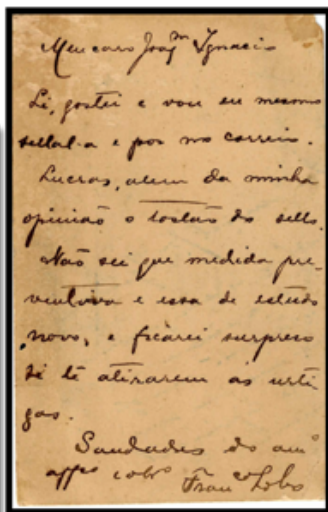 Meu caro Joaqm Ignacio
Li, gostei e vou eu mesmo
sellal-a e pôr no correio.
Lucras, alem da minha
opinião o tostão do sello.
Não sei que medida pre-
ventiva e essa de estudo
novo, e ficarei surpreso
se te atirarem ás urti
gas.
Saudades do amo
affco colro
Franco Lobo